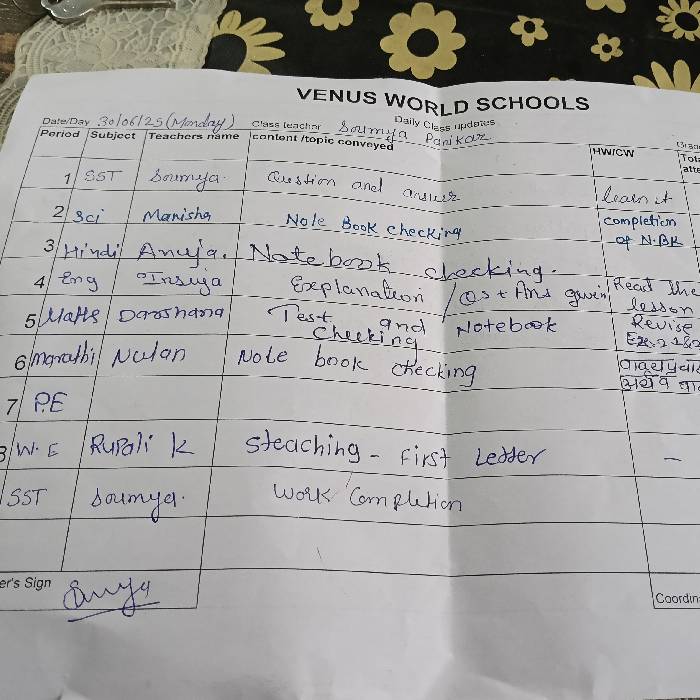 VENUS WORLD SCHOOLS
Daily Class updates
Date/Day 30/06/25 (Monday) Class teacher Soumya Panikar
Period Subject Teachers name content /topic conveyed HW/CW
1 SST Soumya. Question and answer learn it
2 Sci Manisha Note Book checking completion
of N.BK
3 Hindi Anuja. Notebook checking.
4 Eng Insuja Explanation / Qs + Ans given Read the
lesson
5 Maths Darshana Test and Notebook Revise
Checking Ex. 2.1 & 2
6 marathi Nutan Note book checking
7 P.E
8 W.E Rupali K Steaching - First Letter -
SST Soumya. Work Completion
er's Sign
Coordin